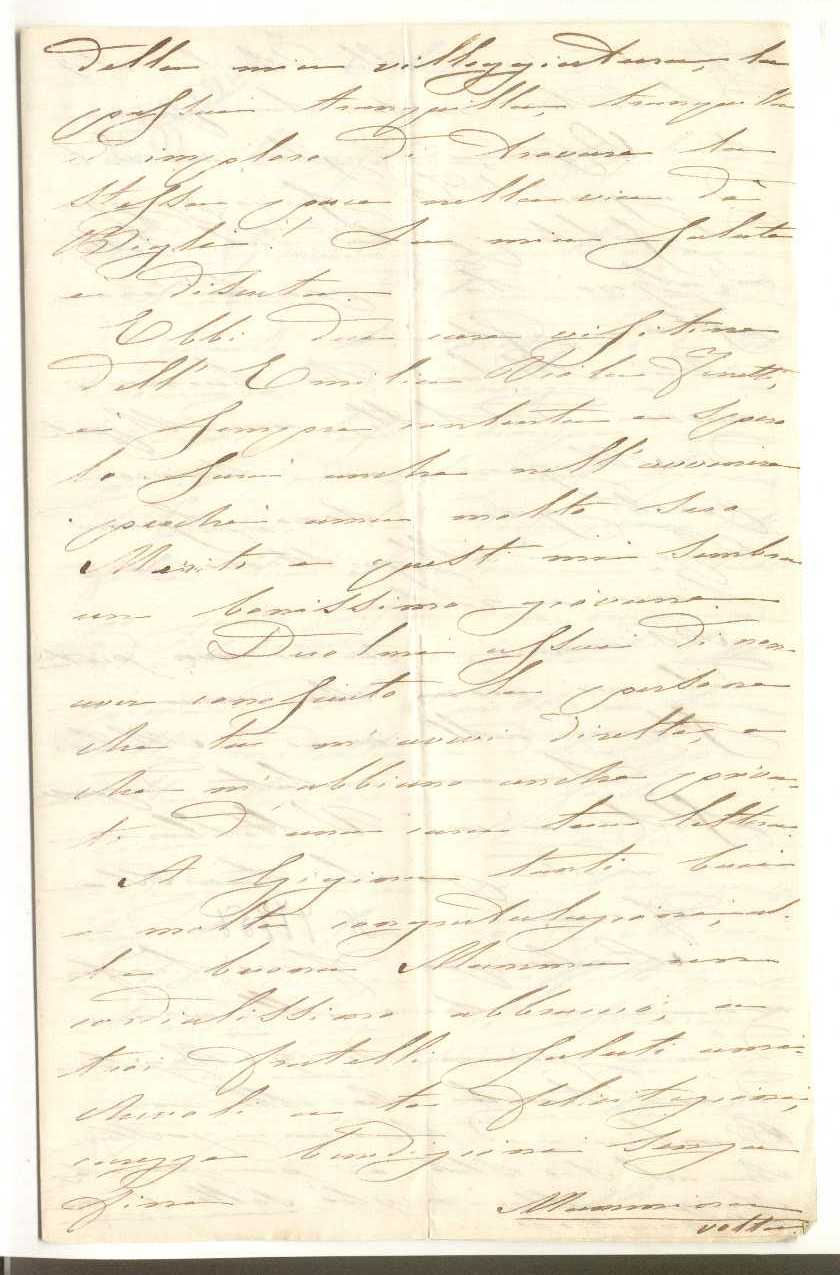 della mia villeggiatura, la
passai tranquilla, tranquilla
ed imploro di trovare la
stessa pace nella via dè
Bigli! La mia salute
è discreta.
Ebbi due care visitine
dell' Emilia Viola
è sempre contenta e spero
lo sarà anche nell'avvenire
perchè ama molto suo
Marito e questi mi sembra
un bonissimo giovane.
Duolmi assai di non
aver conosciuto le persone
che tu m'avevi dirette, e
che m'abbiano anche priva-
ta d'una cara tua lettera.
A Gigione tanti baci
e molte congratulazioni, al-
la buona Mamma un
cordialissimo abbraccio, ai
tuoi fratelli saluti ami-
chevoli a te felicitazioni,
carezze benedizioni senza
fine
volta.